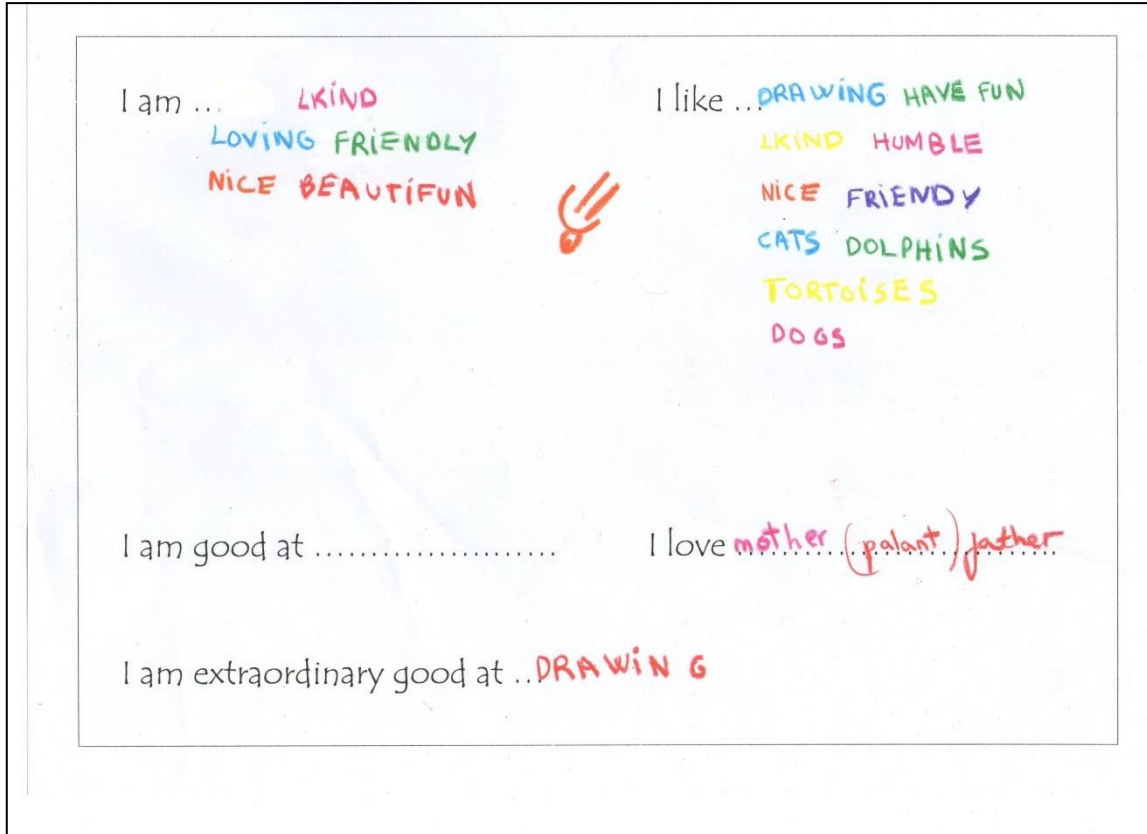 I am ... LKIND
LOVING FRIENDLY
NICE BEAUTIFUN
I like ... DRAWING HAVE FUN
LKIND HUMBLE
NICE FRIENDY
CATS DOLPHINS
TORTOISES
DOGS
I am good at ......................
I love mother (palant) jather
I am extraordinary good at ... DRAWING